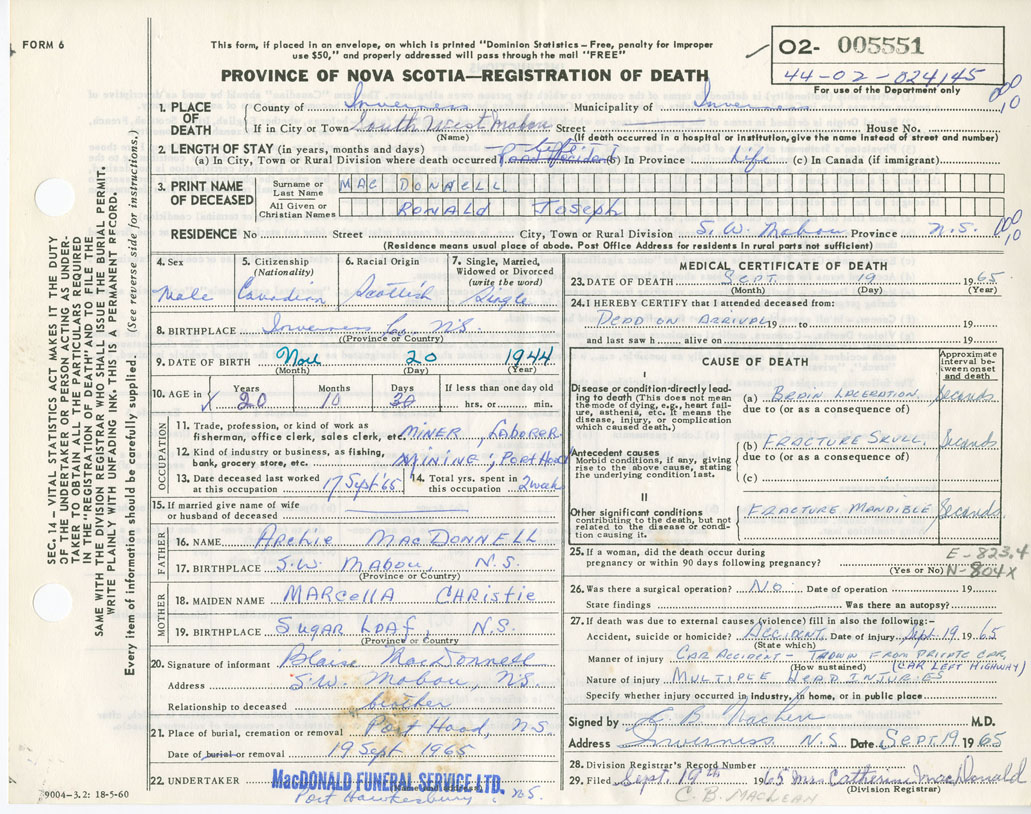 FORM 6
This form, if placed in an envelope, on which is printed "Dominion Statistics – Free, penalty for improper
use $50," and properly addressed will pass through the mail "FREE"
PROVINCE OF NOVA SCOTIA—REGISTRATION OF DEATH
02- 005551
44-02-024145
For use of the Department only
SEC. 14 – VITAL STATISTICS ACT MAKES IT THE DUTY
OF THE UNDERTAKER OR PERSON ACTING AS UNDER-
TAKER TO OBTAIN ALL THE PARTICULARS REQUIRED
IN THE "REGISTRATION OF DEATH" AND TO FILE THE
SAME WITH THE DIVISION REGISTRAR WHO SHALL ISSUE THE BURIAL PERMIT.
WRITE PLAINLY WITH UNFADING INK. THIS IS A PERMANENT RECORD.
Every item of information should be carefully supplied. (See reverse side for instructions.)
1. PLACE OF DEATH
County of Inverness Municipality of Inverness
If in City or Town South West Mabou Street House No.
(Name) (If death occurred in a hospital or institution, give the name instead of street and number)
2. LENGTH OF STAY (in years, months and days)
(a) In City, Town or Rural Division where death occurred Life (b) In Province Life (c) In Canada (if immigrant)
3. PRINT NAME OF DECEASED
Surname or Last Name MAC DONELL
All Given or Christian Names RONALD Joseph
RESIDENCE No Street City, Town or Rural Division S.W. Mabou Province N.S.
(Residence means usual place of abode. Post Office Address for residents in rural parts not sufficient)
4. Sex
Male
5. Citizenship (Nationality)
Canadian
6. Racial Origin
Scottish
7. Single, Married, Widowed or Divorced (write the word)
Single
8. BIRTHPLACE Inverness Co. N.S.
(Province or Country)
9. DATE OF BIRTH Nov 20 1944
(Month) (Day) (Year)
10. AGE in Years Months Days If less than one day old
20 10 hrs. or min.
OCCUPATION
11. Trade, profession, or kind of work as
fisherman, office clerk, sales clerk, etc. MINER, LABORER
12. Kind of industry or business, as fishing,
bank, grocery store, etc. MINING, PORT HOOD
13. Date deceased last worked at this occupation 17 Sept '65
14. Total yrs. spent in this occupation 2 weeks
15. If married give name of wife
or husband of deceased
FATHER
16. NAME Archie MacDONNELL
17. BIRTHPLACE S.W. MABOU, N.S.
(Province or Country)
MOTHER
18. MAIDEN NAME MARCELLA CHRISTIE
19. BIRTHPLACE SUGAR LOAF, N.S.
(Province or Country)
20. Signature of informant Blaise MacDonnell
Address S.W. Mabou, N.S.
Relationship to deceased brother
21. Place of burial, cremation or removal Port Hood, N.S.
Date of burial or removal 19 Sept 1965
22. UNDERTAKER MacDONALD FUNERAL SERVICE LTD.
(Name and address)
Port Hawkesbury, N.S.
9004-3.2: 18-5-60
MEDICAL CERTIFICATE OF DEATH
23. DATE OF DEATH SEPT. 19 1965
(Month) (Day) (Year)
24. I HEREBY CERTIFY that I attended deceased from:
DEAD ON ARRIVAL 19 to 19
and last saw h alive on 19
CAUSE OF DEATH
Approximate interval between onset and death
I
Disease or condition directly lead-
ing to death (This does not mean
the mode of dying, e.g., heart fail-
ure, asthenia, etc. It means the
disease, injury, or complication
which caused death.)
(a) BRAIN LACERATION Seconds
due to (or as a consequence of)
Antecedent causes
Morbid conditions, if any, giving
rise to the above cause, stating
the underlying condition last.
(b) FRACTURE SKULL, Seconds
due to (or as a consequence of)
(c)
II
Other significant conditions
contributing to the death, but not
related to the disease or condi-
tion causing it.
FRACTURE MANDIBLE Seconds
25. If a woman, did the death occur during
pregnancy or within 90 days following pregnancy?
(Yes or No)
E-823.4
N-804X
26. Was there a surgical operation? NO Date of operation 19
State findings Was there an autopsy?
27. If death was due to external causes (violence) fill in also the following:–
Accident, suicide or homicide? ACCIDENT Date of injury Sept 19 1965
(State which)
Manner of injury CAR ACCIDENT – THOWN FROM PRIVATE CAR,
(How sustained) (CAR LEFT HIGHWAY)
Nature of injury MULTIPLE HEAD INJURIES
Specify whether injury occurred in industry, in home, or in public place
Signed by C B MacLean M.D.
Address Inverness N.S. Date SEPT 19 1965
28. Division Registrar's Record Number
29. Filed Sept. 19th 1965 Mrs. Catherine MacDonald
(Division Registrar)
C. B. MACLEAN